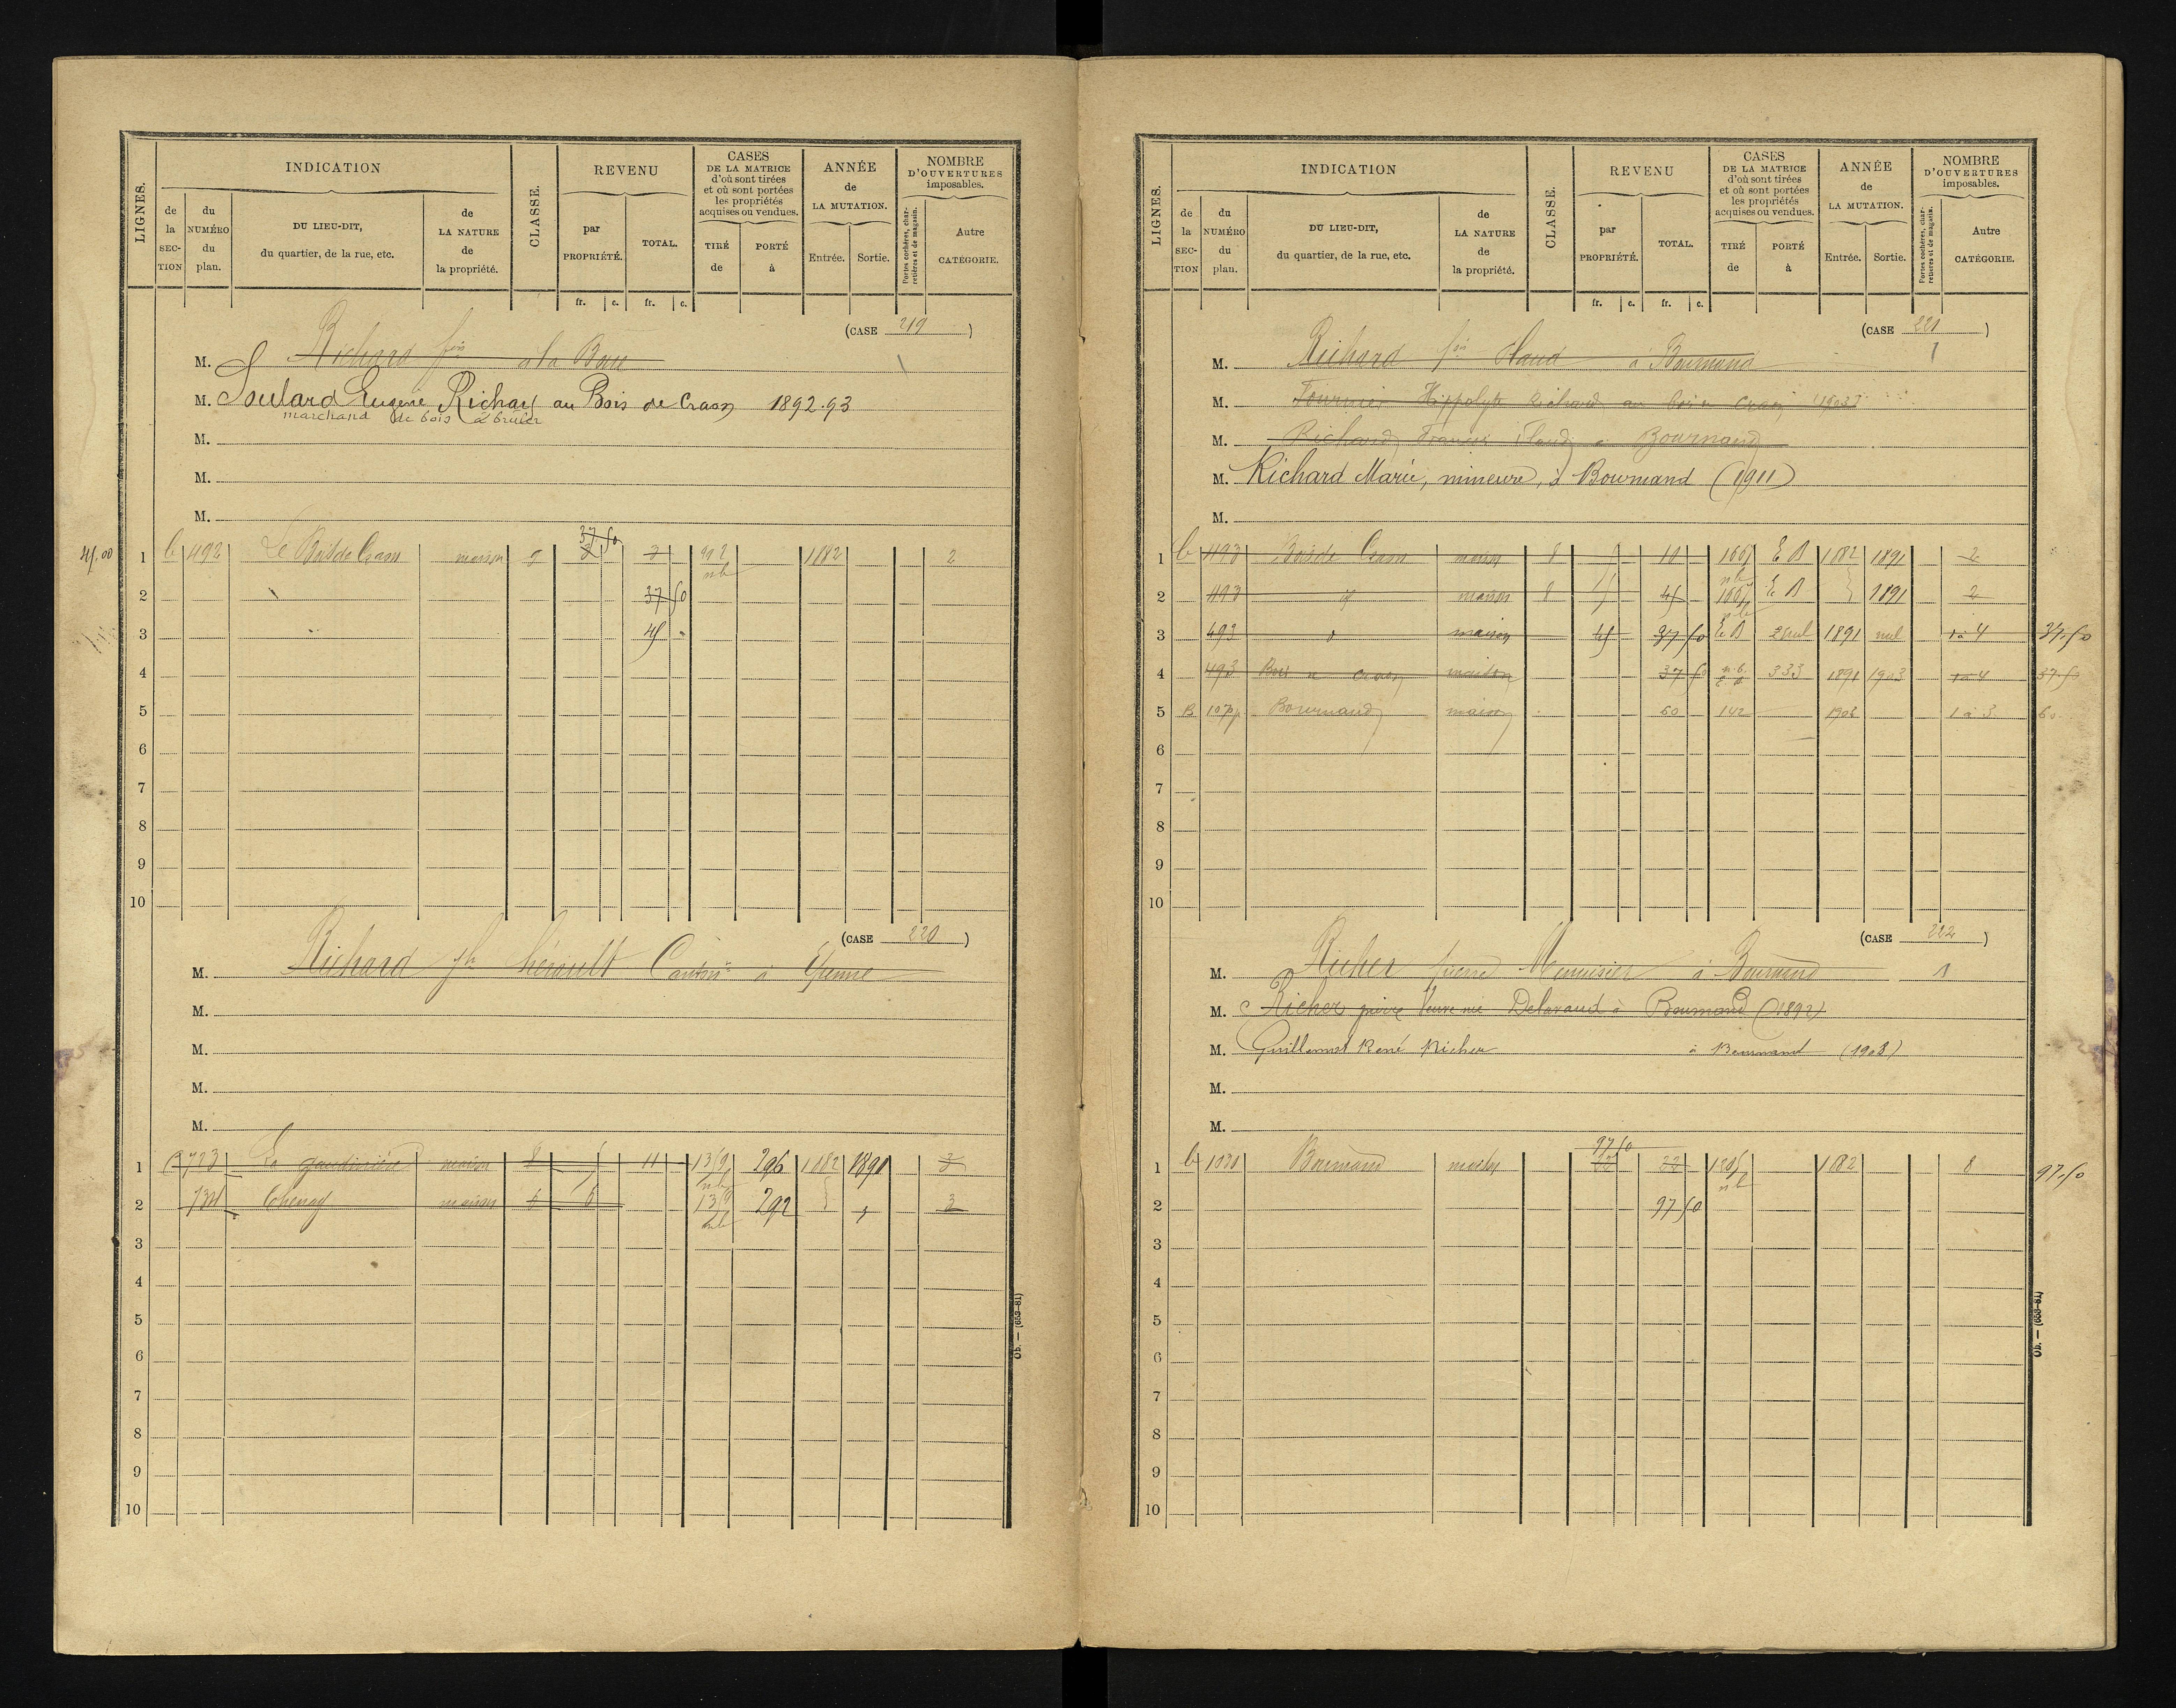 LIGNES.
INDICATION
de la SECTION
du NUMÉRO du plan.
DU LIEU-DIT, du quartier, de la rue, etc.
de LA NATURE de la propriété.
CLASSE.
REVENU
par PROPRIÉTÉ.
TOTAL.
fr. c. fr. c.
CASES DE LA MATRICE d'où sont tirées et où sont portées les propriétés acquises ou vendues.
TIRÉ de
PORTÉ à
ANNÉE de LA MUTATION.
Entrée. Sortie.
NOMBRE D'OUVERTURES imposables.
Portes cochères, charretières et de magasin.
Autre CATÉGORIE.
(CASE 219)
M. Richard fois à la
M. Soulard Eugène Richard au Bois de Craon 1892.93
marchand de bois à bruler
M.
M.
M.
45.00 1 C 492 Le Bois de Craon maison 5 37 50 7 1882 2
2 37 50
3 45
4
5
6
7
8
9
10
(CASE 220)
M. Richard hérault à
M.
M.
M.
M.
1 723 La maison 8 11 296 1882 1890 3
2 734 maison 6 6 292 3
3
4
5
6
7
8
9
10
Ob. — (653-81)
LIGNES.
INDICATION
de la SECTION
du NUMÉRO du plan.
DU LIEU-DIT, du quartier, de la rue, etc.
de LA NATURE de la propriété.
CLASSE.
REVENU
par PROPRIÉTÉ.
TOTAL.
fr. c. fr. c.
CASES DE LA MATRICE d'où sont tirées et où sont portées les propriétés acquises ou vendues.
TIRÉ de
PORTÉ à
ANNÉE de LA MUTATION.
Entrée. Sortie.
NOMBRE D'OUVERTURES imposables.
Portes cochères, charretières et de magasin.
Autre CATÉGORIE.
(CASE 221)
M. Richard fois Claud à Bournand 1
M. Fournier Hippolyte Richard au bois de Craon (1903)
M. Richard Francis Claud à Bournand
M. Richard Marie, mineure, à Bournand (1911)
M.
1 C 493 Bois de Craon maison 8 5 10 E B 1882 1891 2
2 493 d maison 8 5 E B 1891 2
3 493 d maison 45 37 50 E B 1891 nul 1 à 4 37.50
4 493 Bois de Craon maison 37 50 333 1891 1903 1 à 4 37.50
5 B Bournand maison 60 142 1908 1 à 3 60
6
7
8
9
10
(CASE 222)
M. Richer pierre Menuisier à Bournand 1
M. Richer pierre Veuve née Delavaud à Bournand (1892)
M. Guillemet René Richer à Bournand (1908)
M.
M.
1 1031 Bournand maison 97 50 22 1882 8 97.50
2 97 50
3
4
5
6
7
8
9
10
Ob. — (653-81)